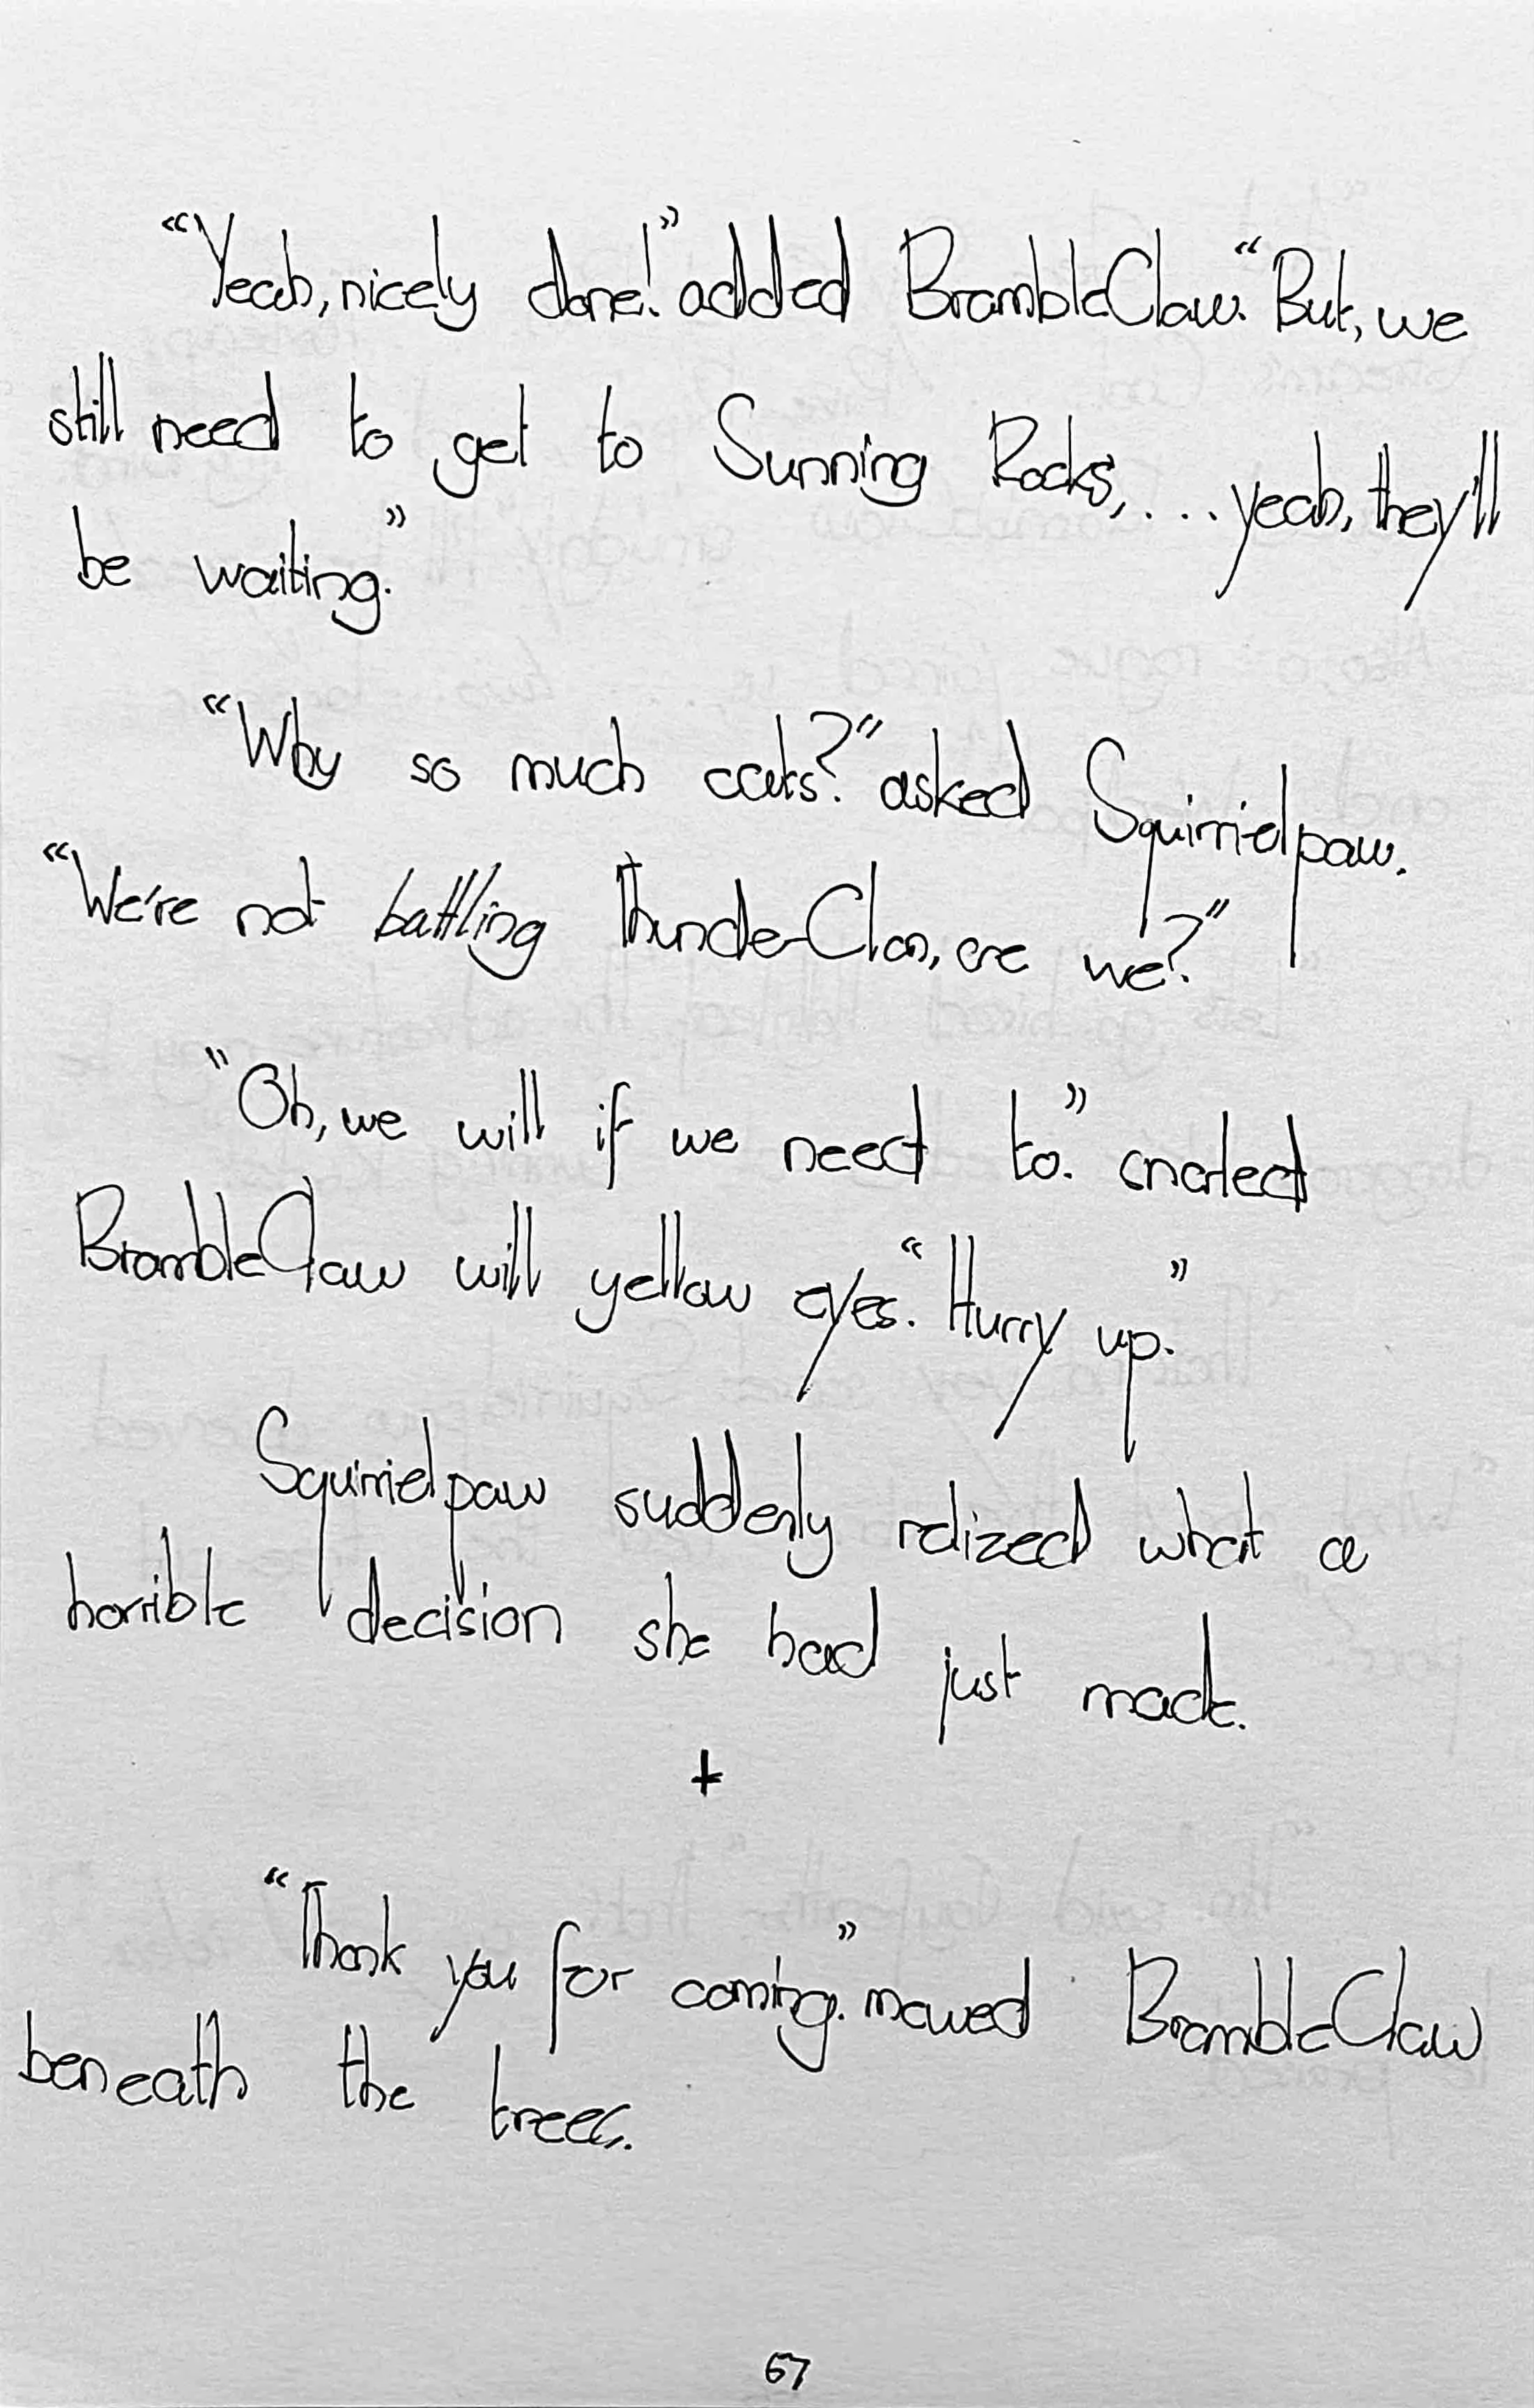 “Yeah, nicely done!” added BrambleClaw. “But, we
still need to get to Sunning Rocks, ... yeah, they'll
be waiting.”
“Why so much cats?” asked Squirrielpaw.
“We're not battling ThunderClan, are we?”
“Oh, we will if we need to.” snarled
BrambleClaw will yellow eyes. “Hurry up.”
Squirrielpaw suddenly relized what a
horrible decision she had just made.
+
“Thank you for coming.” mewed BrambleClaw
beneath the trees.
67